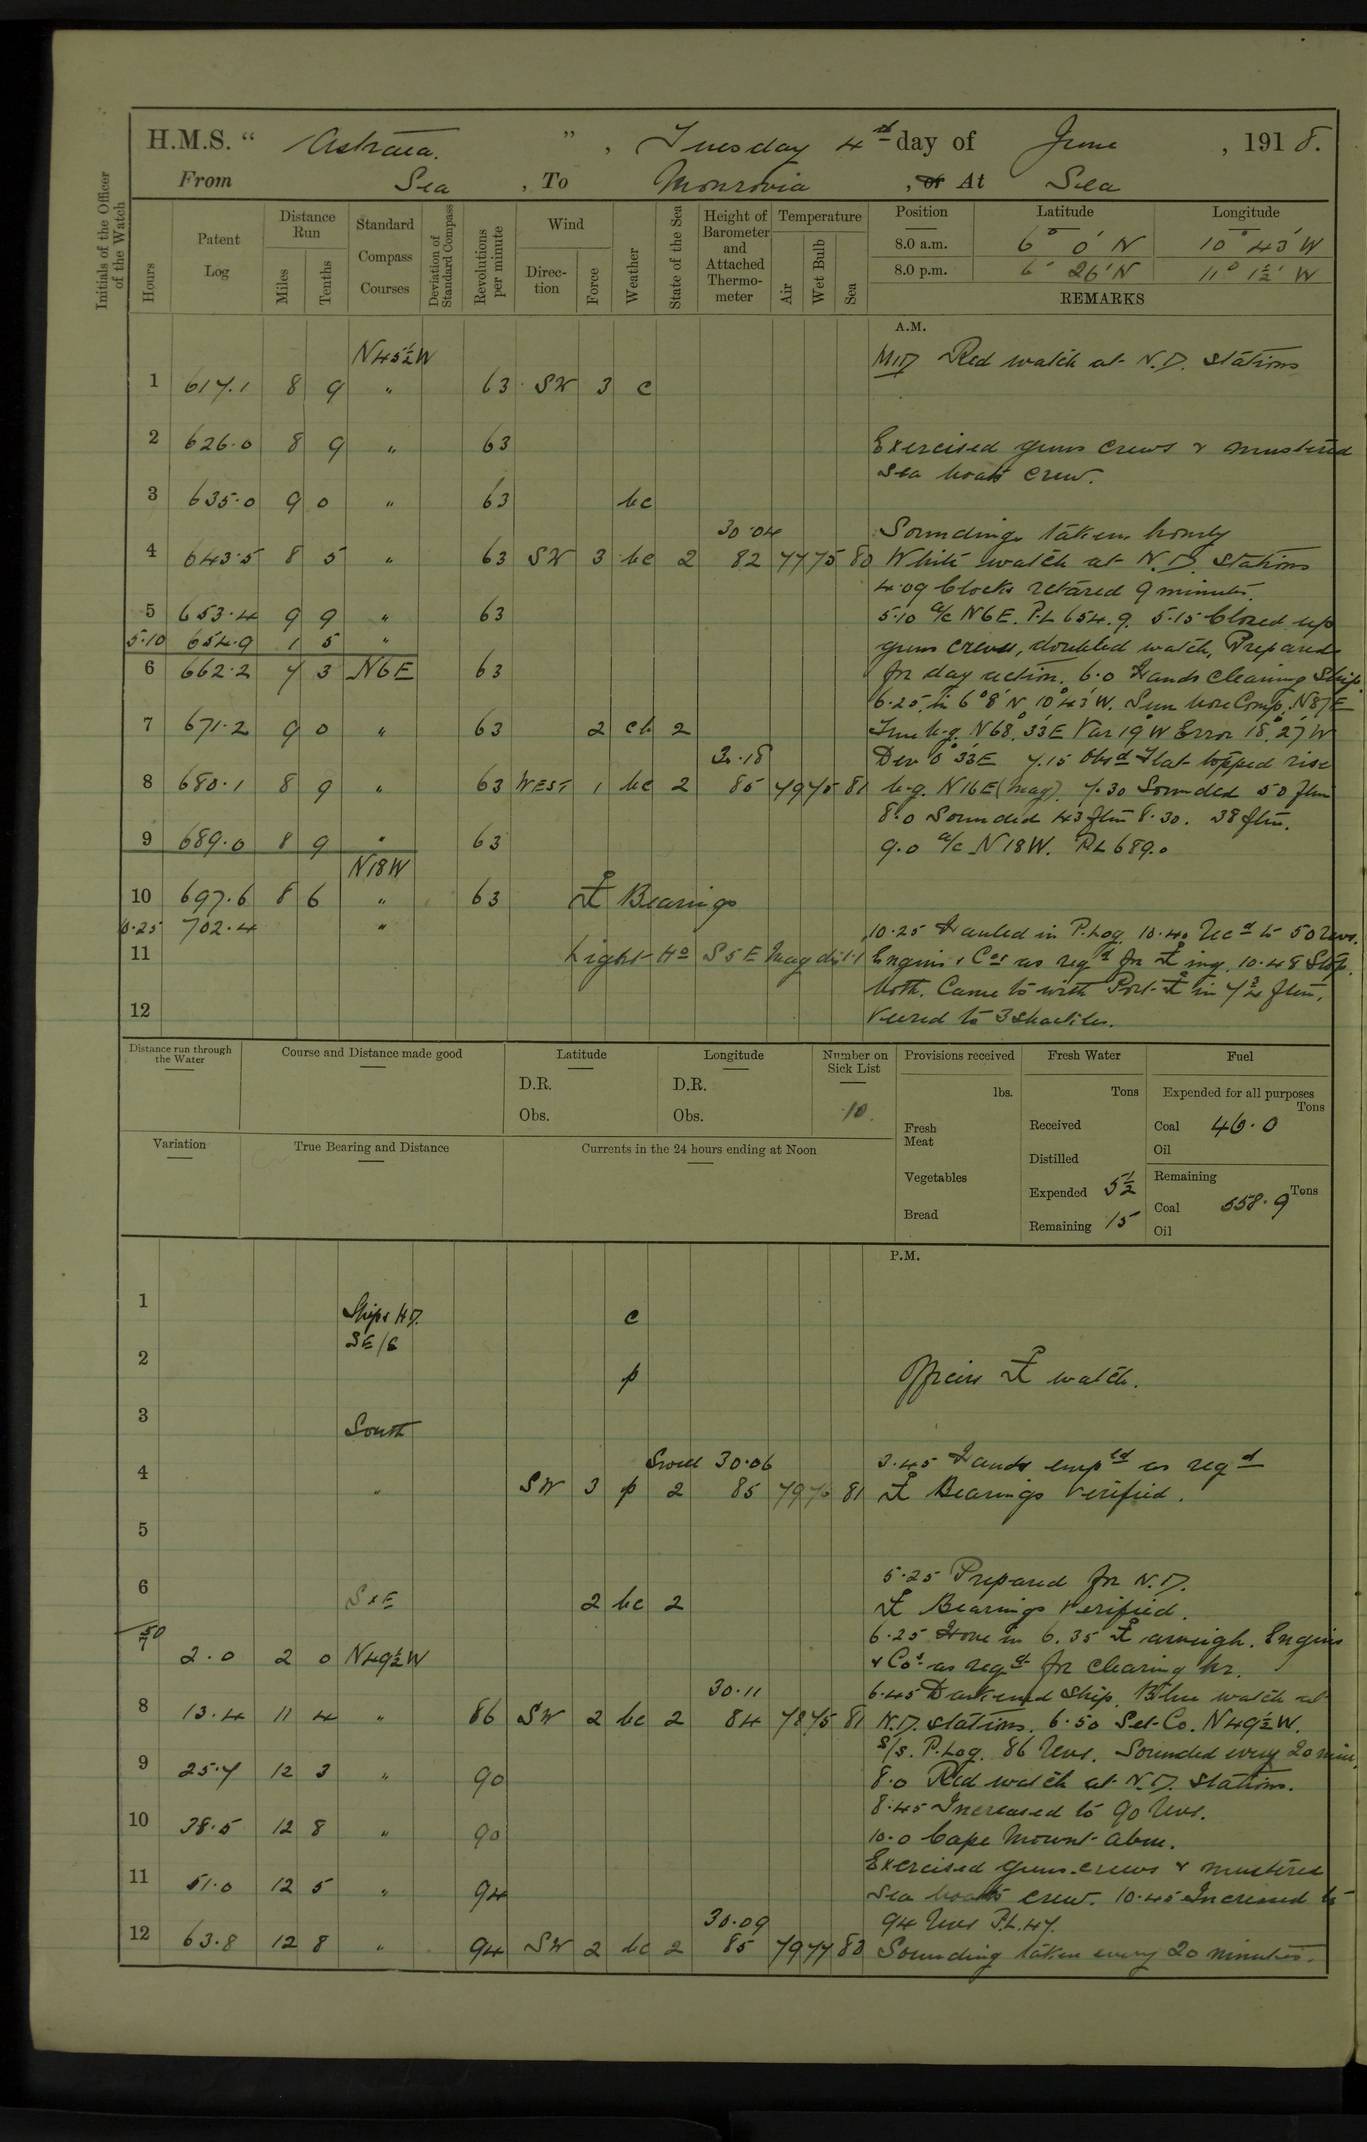 H.M.S. " Astraea. ", Tuesday 4th day of June, 1918.
From Sea, To Monrovia, or At Sea
Initials of the Officer of the Watch
Hours Patent Log Distance Run Miles Tenths Standard Compass Courses Deviation of Standard Compass Revolutions per minute Wind Direction Force Weather State of the Sea Height of Barometer and Attached Thermometer Temperature Air Wet Bulb Sea
Position Latitude Longitude
8.0 a.m. 6° 0' N 10° 43' W
8.0 p.m. 6° 26' N 11° 1½' W
REMARKS
A.M.
N45½W MID Red watch at N.D. stations
1 617.1 8 9 " 63 SW 3 c
2 626.0 8 9 " 63 Exercised guns crews & mustered
sea boats crew.
3 635.0 9 0 " 63 bc
30.04 Soundings taken hourly
4 643.5 8 5 " 63 SW 3 bc 2 82 77 75 80 White watch at N.D. stations
4.09 Clocks retared 9 minutes.
5 653.4 9 9 " 63 5.10 a/c N6E. P.L 654.9. 5.15 Closed up
5.10 654.9 1 5 " guns crews, doubled watch, Prepared
6 662.2 7 3 N6E 63 for day action. 6.0 Hands clearing ship.
6.25 in 6°8'N 10°43'W. Sun bore Comp. N87E
7 671.2 9 0 " 63 2 cb 2 True b-g. N68°33'E Var 19°W Error 18°27'W
30.18 Dev 0°33'E 7.15 Obsd Flat topped rise
8 680.1 8 9 " 63 WEST 1 bc 2 85 79 75 81 b-g. N16E (mag). 7.30 Sounded 50 fthm
8.0 Sounded 43 fthm 8.30. 38 fthm.
9 689.0 8 9 " 63 9.0 a/c N18W. P.L 689.0
N18W
10 697.6 8 6 " 63 ⚓ Bearings
10.25 702.4 " 10.25 Hauled in P.Log. 10.40 Recd to 50 revs.
11 Light Ho S5E Mag dist 1 Engines & Cos as reqd for ⚓ing. 10.48 Stop.
both. Came to with Port ⚓ in 7¾ fthm,
12 Veered to 3 shackles.
Distance run through the Water Course and Distance made good Latitude Longitude Number on Sick List Provisions received Fresh Water Fuel
D.R. D.R. lbs. Tons Expended for all purposes Tons
Obs. Obs. 10. Fresh Meat Received Coal 40.0
Distilled Oil
Variation True Bearing and Distance Currents in the 24 hours ending at Noon Vegetables Expended 5½ Remaining Tons
Bread Remaining 15 Coal 558.9
Oil
P.M.
1 Ships Hd. c
SE/S
2 p Officers ⚓ watch.
3 South
Swell 30.06 3.45 Hands empld as reqd
4 " SW 3 p 2 85 79 76 81 ⚓ Bearings verified.
5
5.25 Prepared for N.D.
6 SxE 2 bc 2 ⚓ Bearings verified.
6.25 Hove in 6.35 ⚓ aweigh. Engines
50/7 2.0 2 0 N49½W & Cos as reqd for clearing hr.
30.11 6.45 Darkened ship. Blue watch at
8 13.4 11 4 " 86 SW 2 bc 2 84 78 75 81 N.D. stations. 6.50 Set Co. N49½W.
S/s. P.Log. 86 Revs. Sounded every 20 min.
9 25.7 12 3 " 90 8.0 Red watch at N.D. stations.
8.45 Increased to 90 revs.
10 38.5 12 8 " 90 10.0 Cape Mount abm.
Exercised guns crews & mustered
11 51.0 12 5 " 94 sea boats crew. 10.45 Increased to
30.09 94 revs P.L. 47.
12 63.8 12 8 " 94 SW 2 bc 2 85 79 77 83 Sounding taken every 20 minutes.